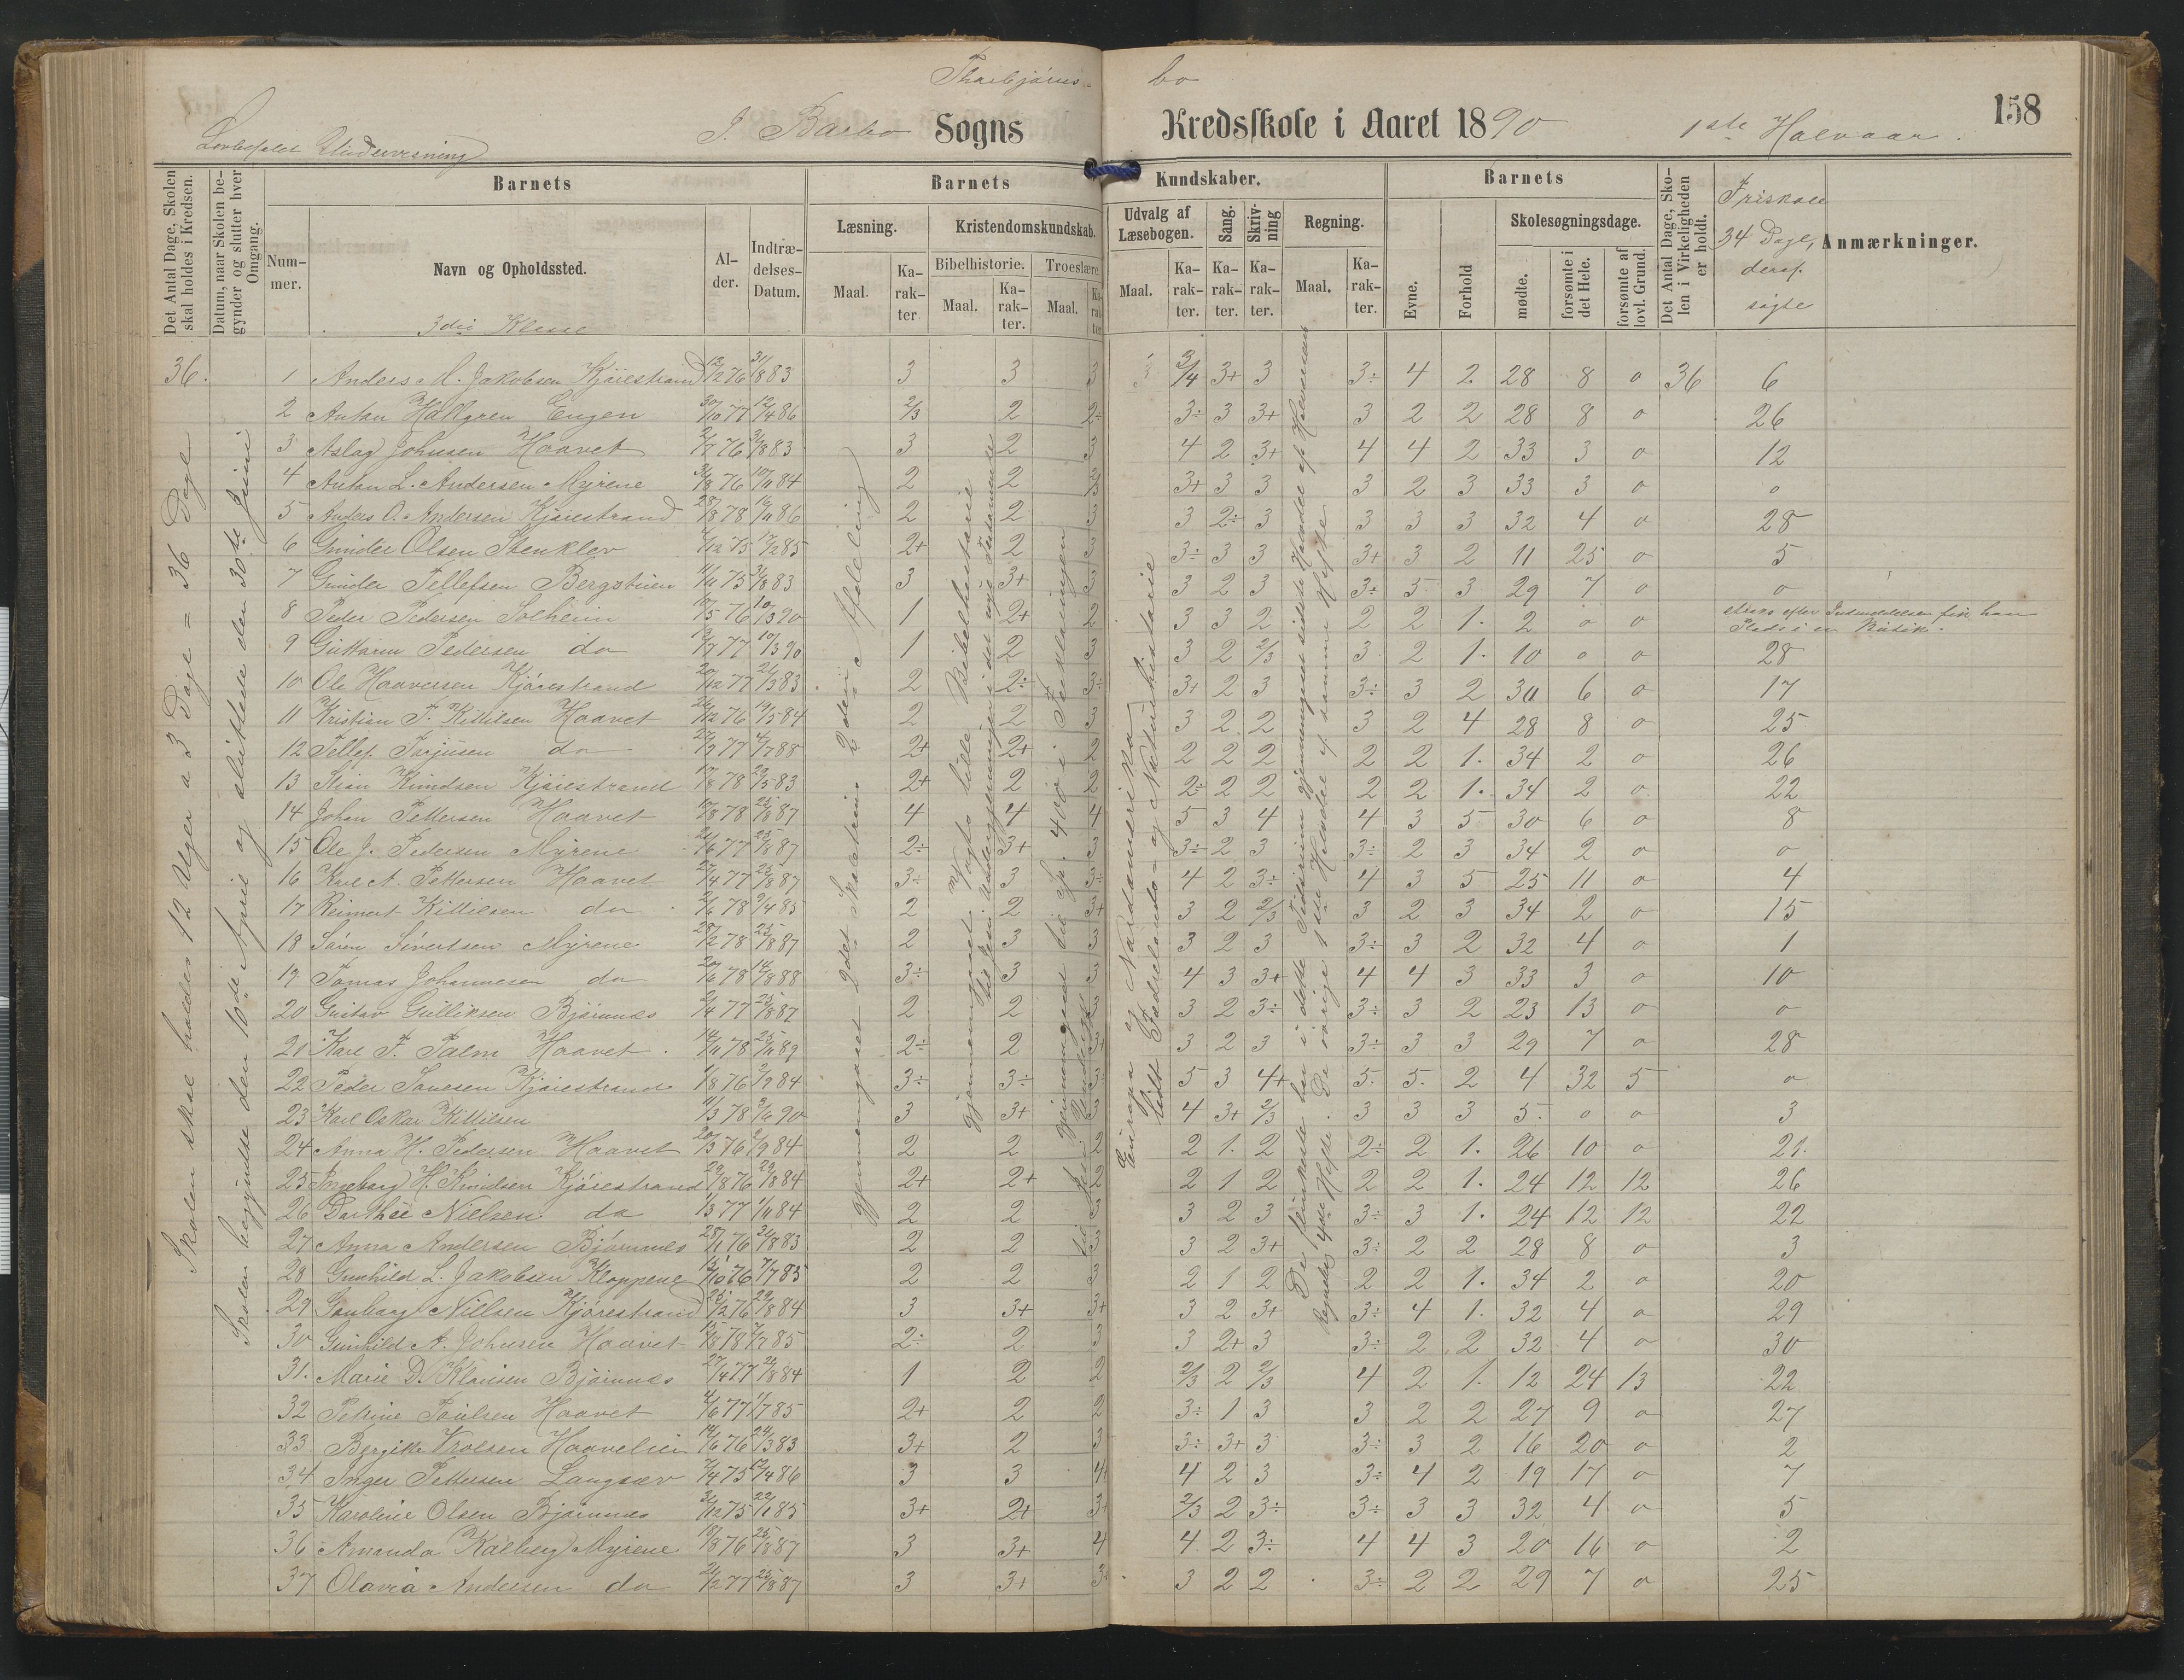 Thorbjørns- bo
158
Lovbefalet Undervisning
I Barbo Sogns Kredsskole i Aaret 1890 1ste Halvaar.
Det Antal Dage, Skolen skal holdes i Kredsen.
Datum, naar Skolen begynder og slutter hver Omgang.
Barnets
Nummer.
Navn og Opholdssted.
3die Klasse
Alder.
Indtrædelses-Datum.
Barnets Kundskaber.
Læsning.
Maal. Karakter.
Kristendomskundskab.
Bibelhistorie. Troeslære.
Maal. Karakter. Maal. Karakter.
Udvalg af Læsebogen.
Maal. Karakter.
Sang. Karakter.
Skrivning Karakter.
Regning.
Maal. Karakter.
Barnets
Evne. Forhold
Skolesøgningsdage.
mødte. forsømte i det Hele. forsømte af lovl. Grund.
Det Antal Dage, Skolen i Virkeligheden er holdt.
Friskole 34 Dage, deraf søgte
Anmærkninger.
Skolen skal holdes 12 Uger a 3 Dage = 36 Dage
Skolen begyndte den 10de April og sluttede den 30te Juni
Gjennemgaaet 2det Skoletrins 2den Afdeling
Gjennemgaaet Vogts lille Bibelhistorie
gjennemgaaet til Sp. 400 i Forklaringen
Europa og Nordamerika
lidt Fædrelands- og Naturhistorie
De flinkeste har i dette Tidsrum gjennemgaaet sidste Halvdel af Halvorsens
Regnebs 4de Hefte. De øvrige 1ste Halvdel af samme Hefte
36. 1 Anders M. Jakobsen Kjøiestrand 13/2 76 31/8 83 3 3 3 3/4 3+ 3 3÷ 4 2 28 8 0 36 6
2 Anton Hallgren Engen 30/10 77 12/4 86 2/3 2 2÷ 3÷ 3 3+ 3 2 2 28 8 0 26
3 Aslag Johnsen Haavet 2/7 76 31/8 83 3 2 3 4 2 3+ 4 4 2 33 3 0 12
4 Anton L. Andersen Myrene 31/8 76 10/11 84 2 2 2/3 3+ 3 3 3 2 3 33 3 0 0
5 Anders O. Andersen Kjøiestrand 28/8 78 16/11 86 2 2 3 3 2÷ 3 3 3 3 32 4 0 28
6 Gunder Olsen Stenklev 7/12 75 17/2 85 2+ 2 3 3÷ 3 3 3+ 3 2 11 25 0 5
7 Gunder Tellefsen Bergstuen 11/11 75 31/8 83 3 3+ 3 3 2 3 3÷ 5 3 29 7 0 0
8 Peder Pedersen Solheim 10/5 76 10/3 90 1 2+ 2 3 3 2 2 2 1. 2 0 0 straks efter Indmeldelsen fik han Plads i en Butik.
9 Guttorm Pedersen do 13/7 77 10/3 90 1 2 3 3 2 2/3 3 2 1. 10 0 0 28
10 Ole Haaversen Kjøiestrand 20/12 77 21/3 83 2 2÷ 3÷ 3+ 2 3 3÷ 3 2 30 6 0 17
11 Kristian T. Kittilsen Haavet 26/12 76 19/5 84 2 2 3 3 2 2 3 2 4 28 8 0 25
12 Tellef. Torjusen do 27/9 77 4/7 88 2+ 2+ 2 2 2 2 2 2 1. 34 2 0 26
13 Stian Knudsen Kjøiestrand 17/8 78 29/5 83 2+ 2 2 2÷ 2 2 2 2 1. 34 2 0 22
14 Johan Pettersen Haavet 10/8 78 25/8 87 4 4 4 5 3 4 4 3 5 30 6 0 8
15 Ole J. Pedersen Myrene 21/6 77 25/8 87 2÷ 3+ 3 3÷ 2 3 3÷ 2 3 34 2 0 0
16 Karl A. Pettersen Haavet 27/4 77 25/8 87 3÷ 3 3÷ 4 2 3÷ 4 3 5 25 11 0 4
17 Reimert Kittilsen do 2/6 78 9/4 85 2 2 3+ 3 2 2/3 3 2 3 34 2 0 15
18 Søren Sivertsen Myrene 28/2 78 25/8 87 2 3 3 3 2 3 3÷ 3 2 32 4 0 1
19 Tomas Johannesen do 20/6 78 14/8 88 3÷ 3 3 4 3 3+ 4 4 3 33 3 0 10
20 Gustav Gulliksen Bjørnnes 2/4 77 25/8 87 2 2 2 3 2 3÷ 3÷ 3 2 23 13 0 0
21 Karl F. Palm Haavet 14/11 78 25/11 89 2÷ 2 3+ 3 2 3 3÷ 3 3 29 7 0 28
22 Peder Tønesen Kjøiestrand 1/8 76 2/9 84 3÷ 3÷ 3 5 3 4+ 5. 5. 2 4 32 5 0
23 Karl Oskar Kittilsen 11/3 78 2/6 90 3 3+ 3 4 3+ 2/3 3 3 3 5. 0 0 3
24 Anna H. Pedersen Haavet 20/3 76 2/9 84 2 2 2 2 1. 2 2÷ 2 1. 26 10 0 21.
25 Ingeborg H. Knudsen Kjøiestrand 29/8 76 29/8 84 2+ 2+ 2 2 1 2 2 2 1. 24 12 12 26
26 Dorthee Nielsen do 1/3 77 1/11 84 2 2 3 3 2 3 3÷ 3 1. 24 12 12 22
27 Anna Andersen Bjørnnes 28/1 76 31/8 83 2 2 3 3 2 3+ 3÷ 2 2 28 8 0 3
28 Gunhild L. Jakobsen Kloppene 13/10 76 7/7 85 2 2 3 2 1 2 2 2 1. 34 2 0 20
29 Gunborg Nielsen Kjøiestrand 25/2 76 29/8 84 3 3+ 3+ 3 2 3+ 3÷ 4 1. 32 4 0 29
30 Gunhild A. Johnsen Haavet 15/8 78 7/7 85 2÷ 2 3 3 2+ 3 3÷ 2 2 32 4 0 30
31. Marie D. Klausen Bjørnnes 27/4 77 29/8 84 1 2 2 2/3 2 2/3 4 2 1. 12 24 13 22
32 Petrine Poulsen Haavet 4/6 77 1/7 85 2+ 2 2 3÷ 1 3 3 2 2 27 9 0 27
33 Bergitte Trolsen Haavelien 14/6 76 24/3 83 3+ 2 3 3÷ 3+ 3 3÷ 3 2 16 20 0 2
34 Inger Pettersen Langsæv 7/4 75 12/4 86 3 3 4 4 2 3 3÷ 4 2 19 17 0 7
35 Karoline Olsen Bjørnnes 31/12 75 22/1 85 3+ 2+ 3+ 2/3 2 3÷ 3÷ 3 3 32 4 0 5
36 Amanda Kalberg Myrene 18/8 76 25/8 87 3 3+ 4 4 2 3÷ 4 4 3 20 16 0 2
37 Olavia Andersen do 21/2 77 25/8 87 3 3+ 3÷ 3 2 2 3÷ 2 2 29 7 0 25